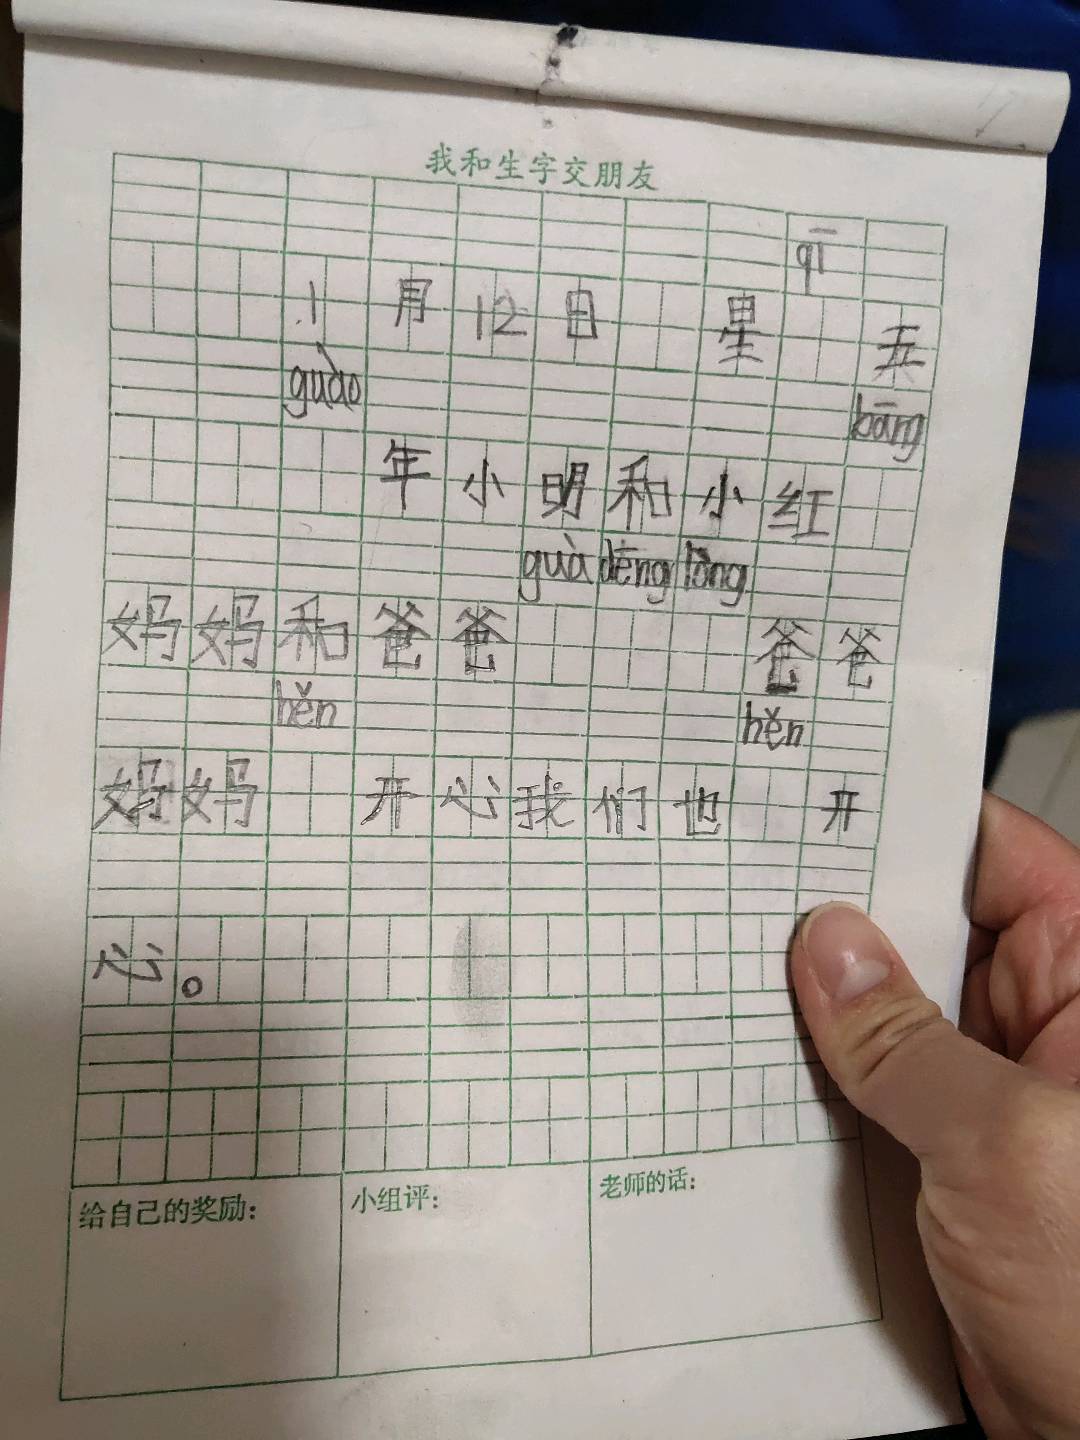 我和生字交朋友
qī
1月12日 星 五
guào bāng
年小明和小红
guà dēng lóng
妈妈和爸爸 爸爸
hěn hěn
妈妈 开心我们也 开
心。
给自己的奖励： 小组评： 老师的话：